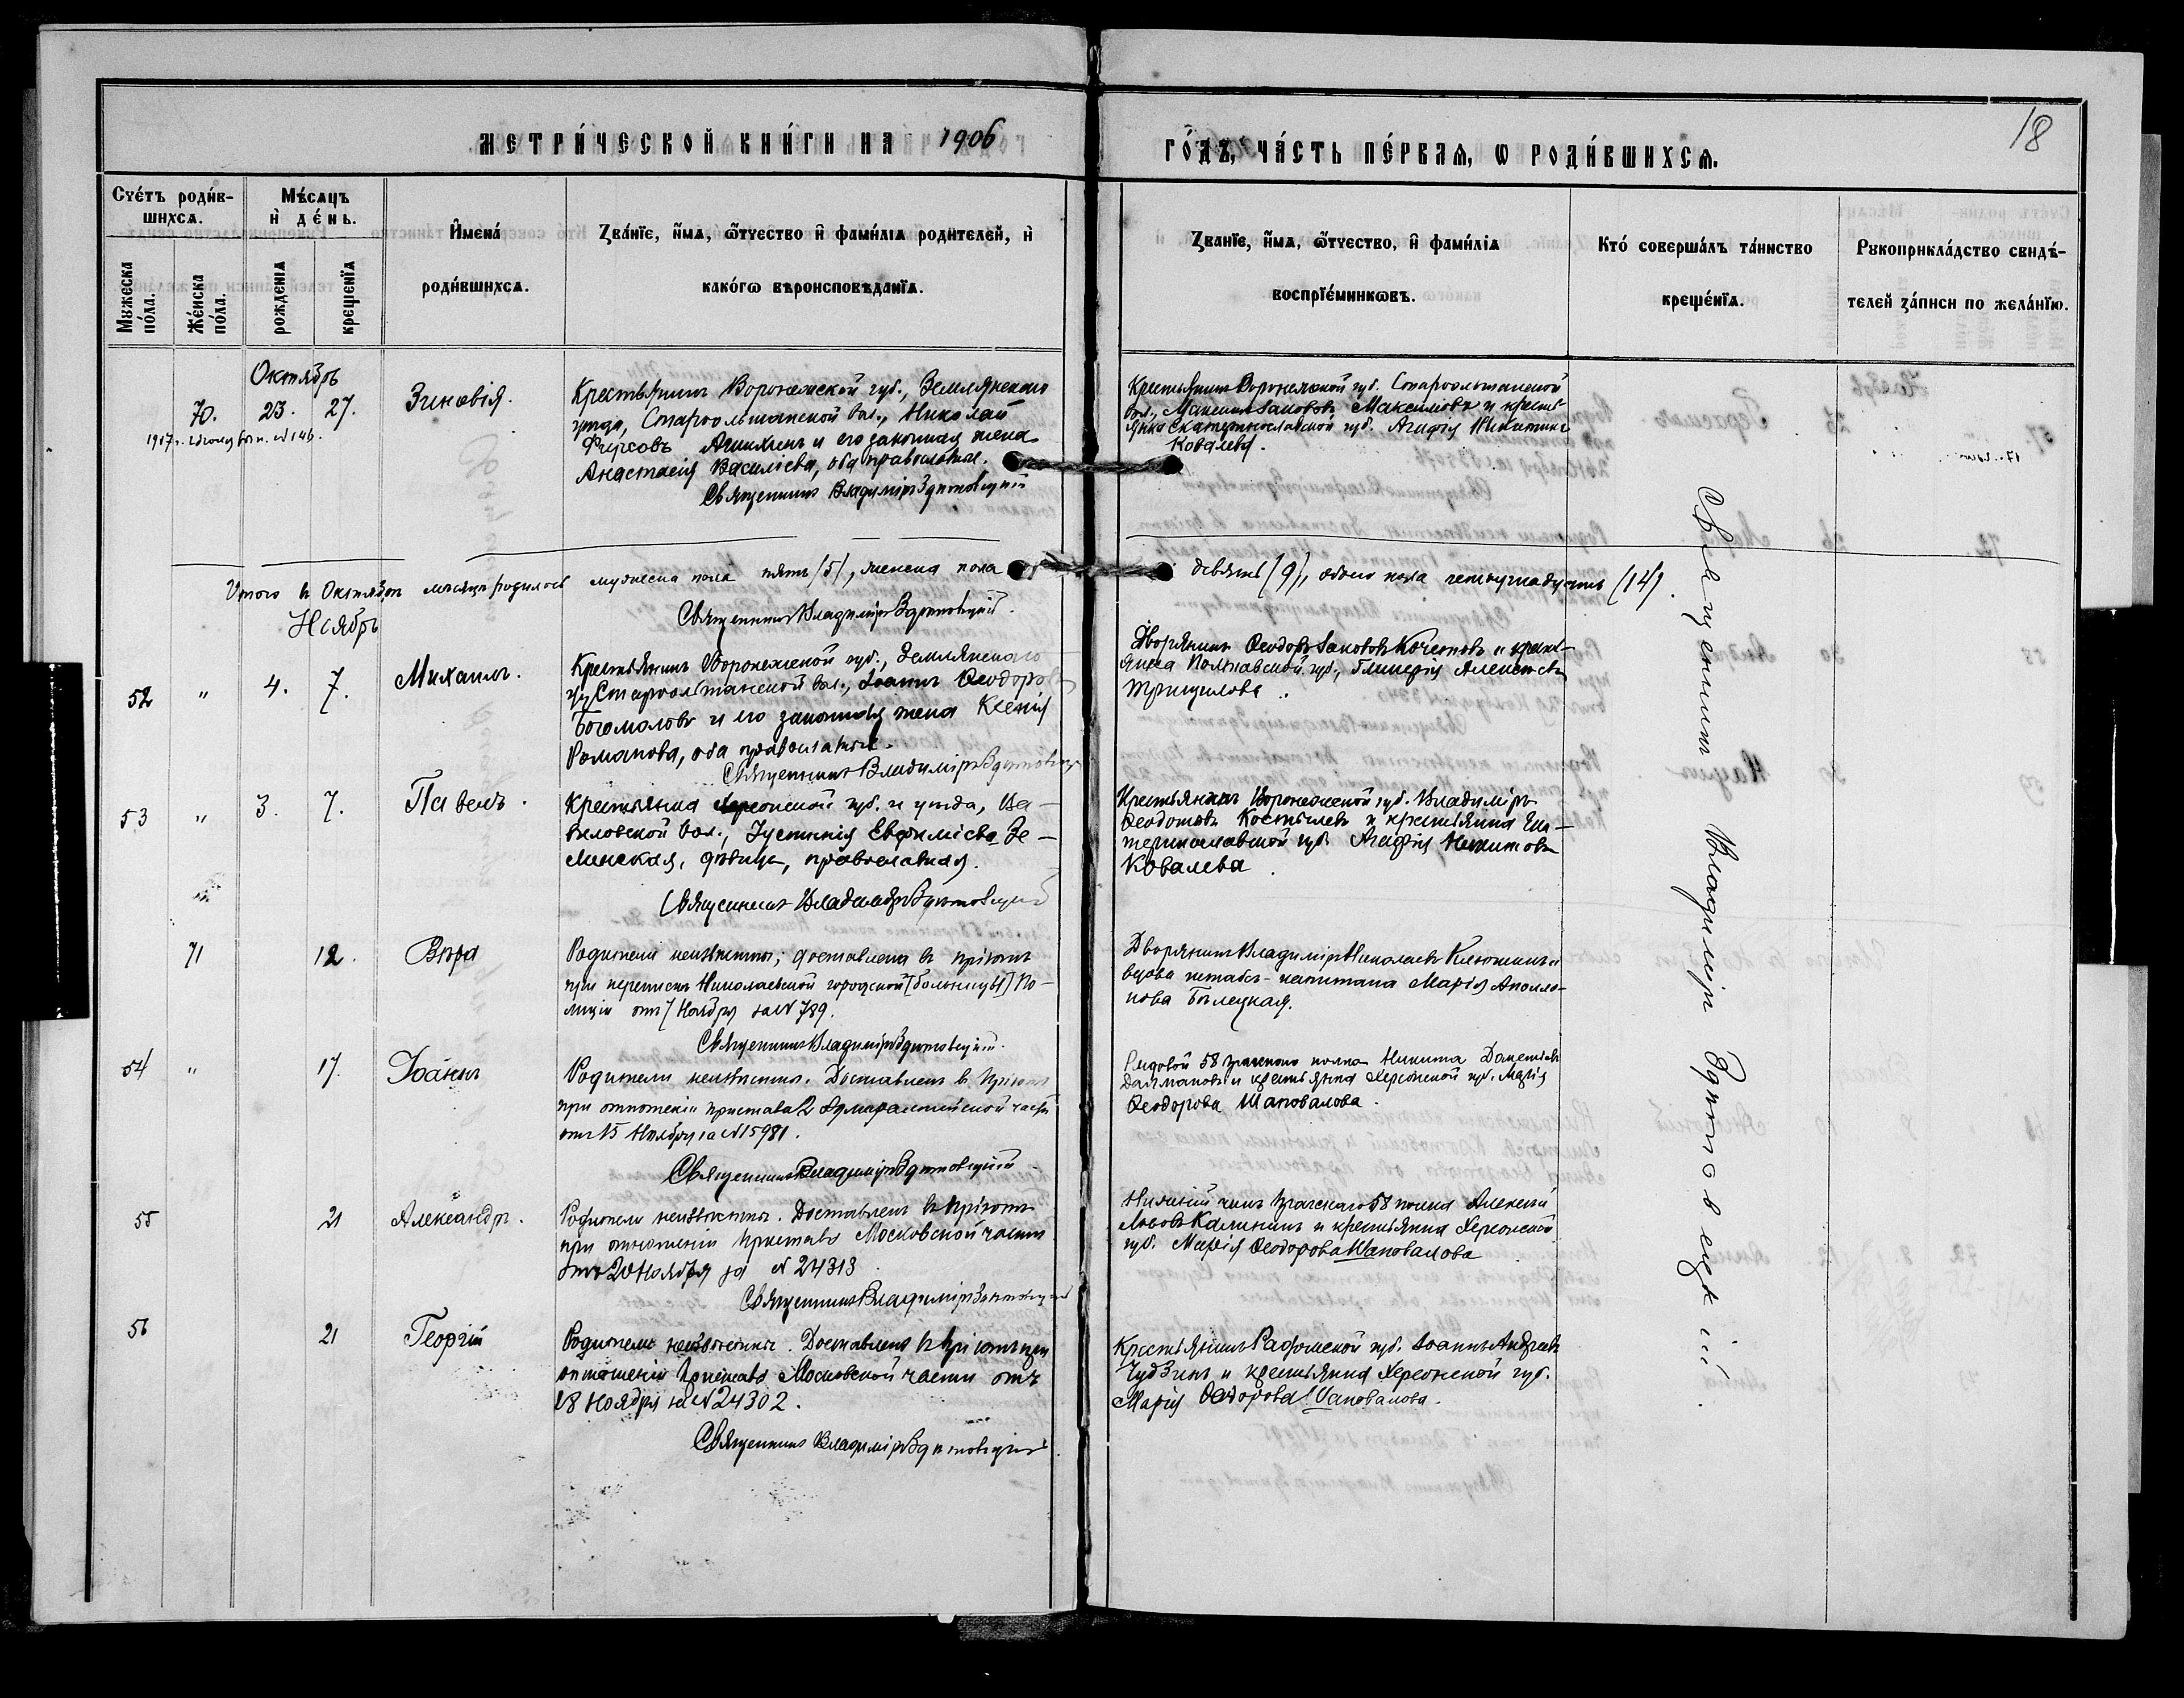 МЕТРИ́ЧЕСКОЙ КНИ́ГИ НА 1906
ГО́ДЪ, ЧА́СТЬ ПЕ́РВАЯ, Ѡ РОДИ́ВШИХСЯ.
18
Счетъ роди́в-
шихся.
Мѣсяцъ
и де́нь.
Мужеска
по́ла.
Же́нска
по́ла.
рожденія
крещенія
Имена́
роди́вшихся.
Зва́нїе, и́мя, ѿчество и фами́лія родителей, и
како́гѡ вѣроисповѣданїя.
Званїе, и́мя, ѿчество, и фами́лія
воспрїе́мниковъ.
Кто́ соверша́лъ та́инство
креще́нїя.
Рукоприкла́дство свидѣ́-
телей за́писи по жела́нїю.
Октябрь
70. 23. 27. Зиновія.
Крестьянинъ Воронежской губ., Землянскаго
уѣзда, Староольшанской вол., Николай
Фирсовъ и его законная жена
Анастасія Васильева, оба православные.
Священникъ Владиміръ Здитовецкій
Крестьянинъ Воронежской губ. Староольшанской
вол., Максимъ Іакововъ Максимовъ и кресть-
янка Екатеринославской губ. Агафія Никитина
Ковалева.
Итого въ Октябрѣ мѣсяцѣ родилось мужеска пола пять (5), женска пола девять (9), обоего пола четырнадцать (14).
Священникъ Владиміръ Здитовецкій.
Ноябрь
52 " 4. 7. Михаилъ.
Крестьянинъ Воронежской губ., Землянскаго
у., Староольшанской вол., Іоаннъ Ѳеодоровъ
Богомоловъ и его законная жена Ксенія
Романова, оба православные.
Священникъ Владиміръ Здитовецкій
Дворянинъ Ѳеодоръ Іакововъ Кочетовъ и кресть-
янка Полтавской губ., Гликерія Алексѣева
53 " 3. 7. Павелъ.
Крестьянка Херсонской губ. и уѣзда, Ва-
виловской вол., Іустинія Евфиміева Зе-
линская, дѣвица, православная.
Священникъ Владиміръ Здитовецкій
Крестьянинъ Воронежской губ. Владиміръ
Ѳеодотовъ Костылевъ и крестьянка Ека-
теринославской губ. Агафія Никитова
Ковалева.
71 12. Вѣра
Родители неизвѣстны; доставлена въ пріютъ
при перепискѣ Николаевской городской [больницы] По-
лиціи отъ 7 Ноября за № 789.
Священникъ Владиміръ Здитовецкій.
Дворянинъ Владиміръ Николаевъ Клюжинъ и
вдова штабсъ-капитана Марія Аполло-
нова Бѣлецкая.
54 " 17. Іоаннъ
Родители неизвѣстны. Доставленъ въ Пріютъ
при отношеніи пристава 2 Адмиралтейской части
отъ 15 Ноября за № 15981.
Священникъ Владиміръ Здитовецкій
Рядовой 58 Пражскаго полка Никита
и крестьянка Херсонской губ. Марія
Ѳеодорова Шаповалова.
55 21 Александръ.
Родители неизвѣстны. Доставленъ въ Пріютъ
при отношеніи Пристава Московской части
отъ 20 Ноября за № 24313
Священникъ Владиміръ Здитовецкій
Нижній чинъ Пражскаго 58 полка Алексѣй
Львовъ Калининъ и крестьянка Херсонской
губ. Марія Ѳеодорова Шаповалова
56 21 Георгій
Родители неизвѣстны. Доставленъ въ Пріютъ при
отношеніи Пристава Московской части отъ
18 Ноября за № 24302.
Священникъ Владиміръ Здитовецкій
Крестьянинъ Радомской губ. Іоаннъ Андреевъ
и крестьянка Херсонской губ.
Марія Ѳеодорова Шаповалова.
Священникъ Владиміръ Здитовецкій.